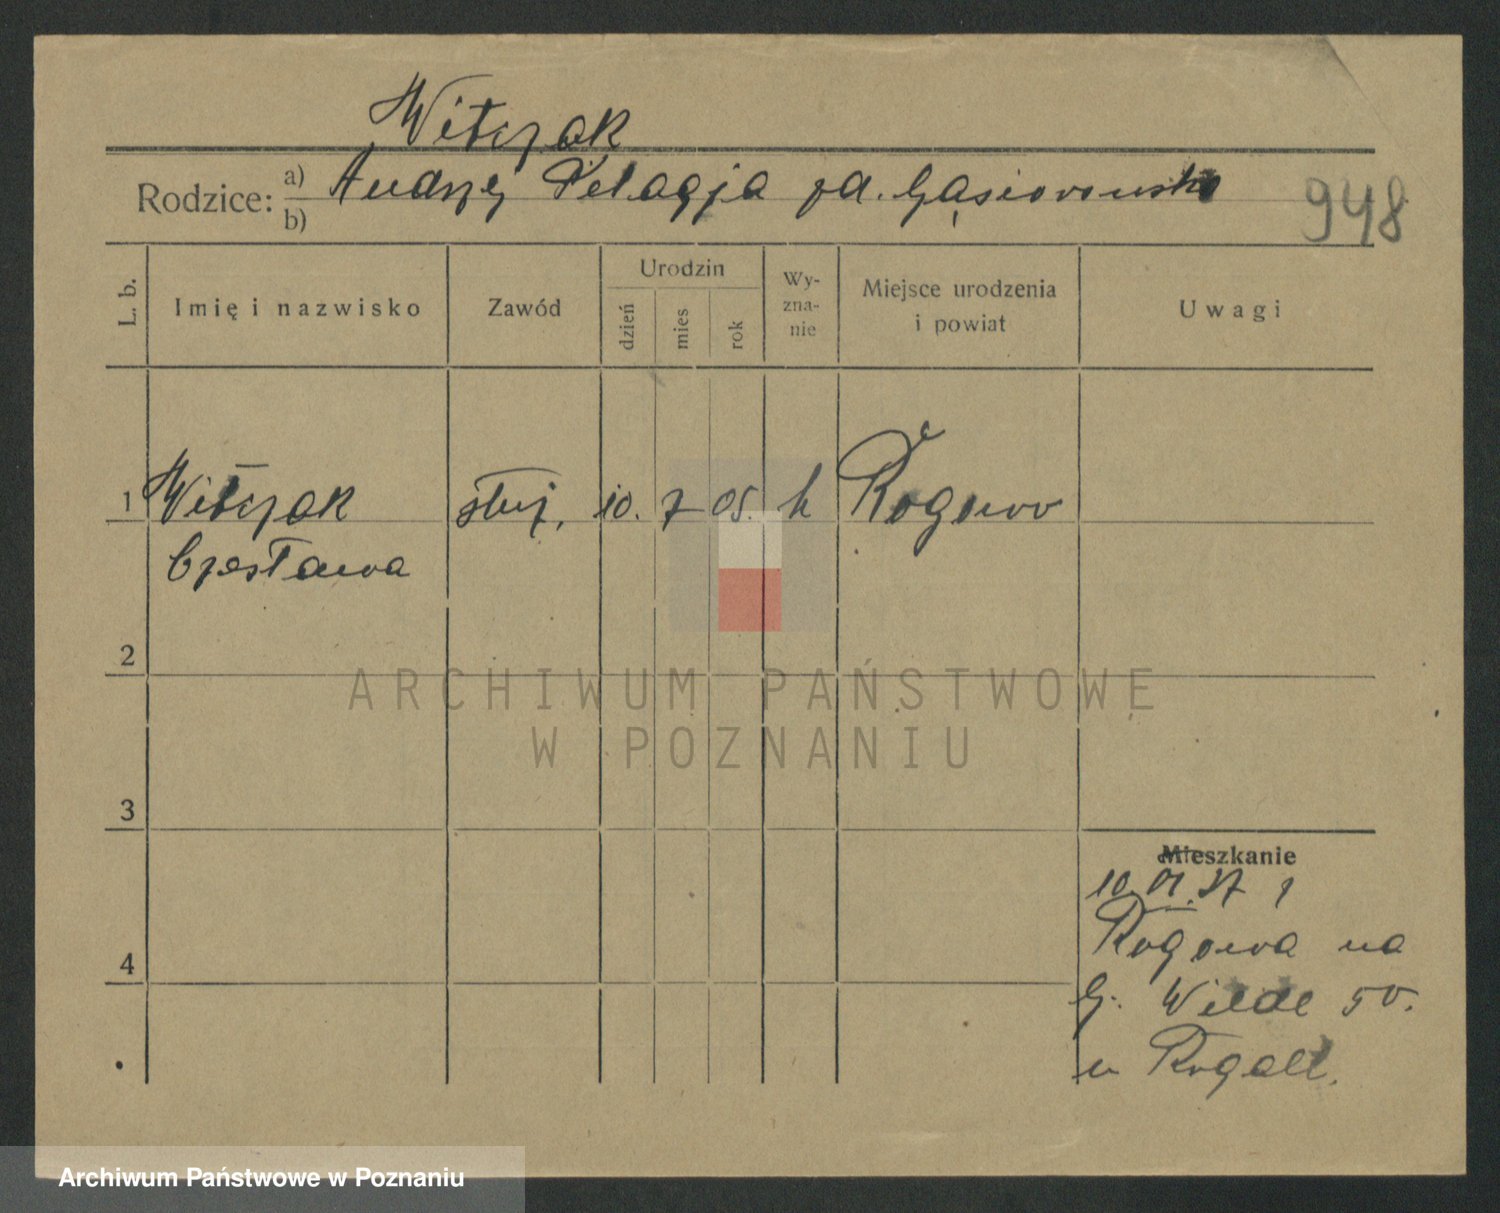 Witczak
Rodzice: a) Andrzej Pelagja zd. Gąsiorowska
b)
948
L. b.
Imię i nazwisko
Zawód
Urodzin
dzień
mies
rok
Wy-
zna-
nie
Miejsce urodzenia
i powiat
Uwagi
1 Witczak służ. 10. 7 05. k Rogowo
Czesława
2
ARCHIWUM PAŃSTWOWE
W POZNANIU
3
Mieszkanie
10. 37
Rogowa na
G. Wilde 50.
u Rogall.
4
Archiwum Państwowe w Poznaniu